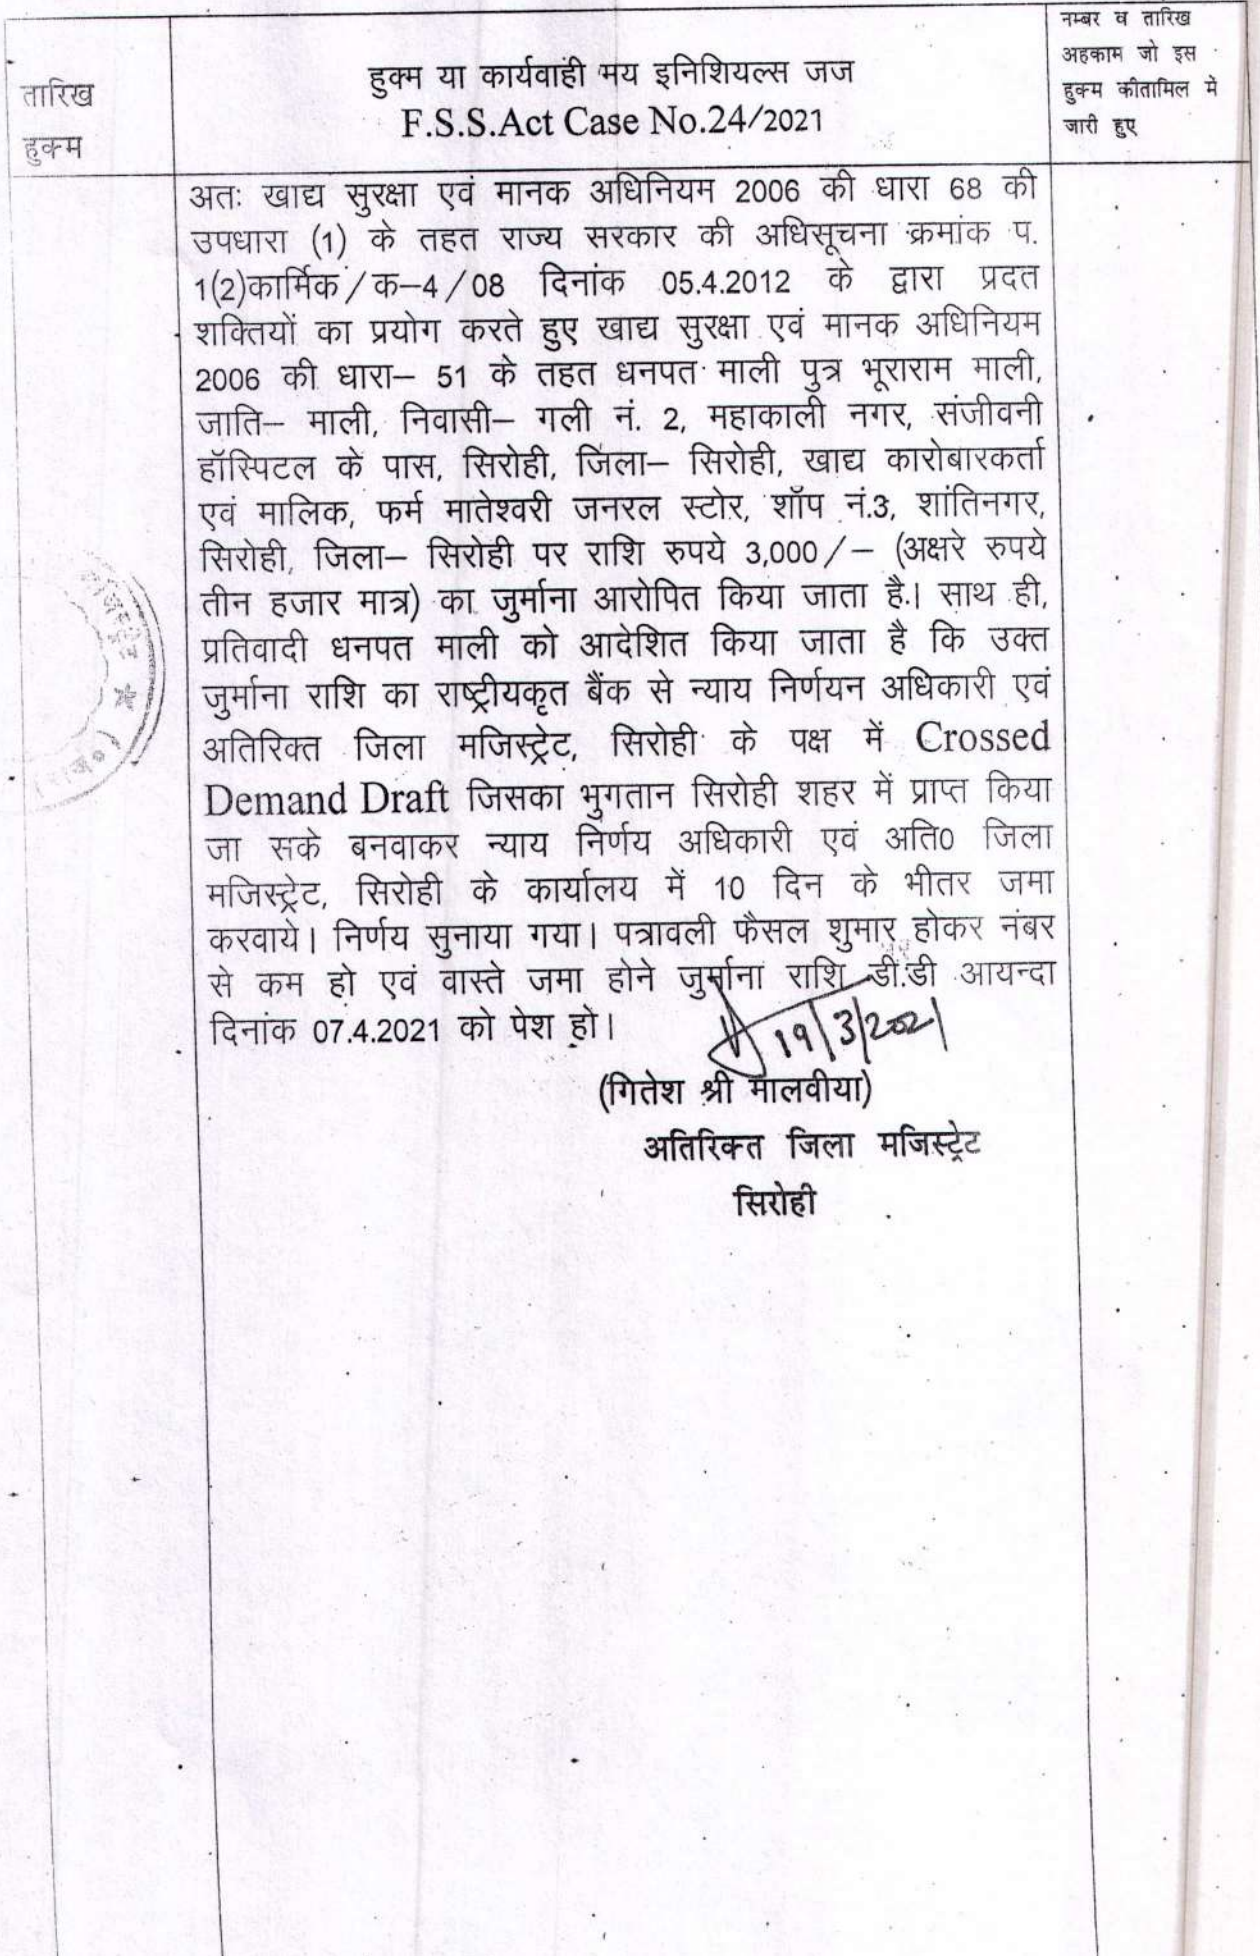 तारिख
हुक्म
हुक्म या कार्यवाही मय इनिशियल्स जज
F.S.S.Act Case No.24/2021
नम्बर व तारिख
अहकाम जो इस
हुक्म कीतामिल मे
जारी हुए
अतः खाद्य सुरक्षा एवं मानक अधिनियम 2006 की धारा 68 की
उपधारा (1) के तहत राज्य सरकार की अधिसूचना क्रमांक प.
1(2)कार्मिक/क–4/08 दिनांक 05.4.2012 के द्वारा प्रदत
शक्तियों का प्रयोग करते हुए खाद्य सुरक्षा एवं मानक अधिनियम
2006 की धारा– 51 के तहत धनपत माली पुत्र भूराराम माली,
जाति– माली, निवासी– गली नं. 2, महाकाली नगर, संजीवनी
हॉस्पिटल के पास, सिरोही, जिला– सिरोही, खाद्य कारोबारकर्ता
एवं मालिक, फर्म मातेश्वरी जनरल स्टोर, शॉप नं.3, शांतिनगर,
सिरोही, जिला– सिरोही पर राशि रुपये 3,000/– (अक्षरे रुपये
तीन हजार मात्र) का जुर्माना आरोपित किया जाता है। साथ ही,
प्रतिवादी धनपत माली को आदेशित किया जाता है कि उक्त
जुर्माना राशि का राष्ट्रीयकृत बैंक से न्याय निर्णयन अधिकारी एवं
अतिरिक्त जिला मजिस्ट्रेट, सिरोही के पक्ष में Crossed
Demand Draft जिसका भुगतान सिरोही शहर में प्राप्त किया
जा सके बनवाकर न्याय निर्णय अधिकारी एवं अति0 जिला
मजिस्ट्रेट, सिरोही के कार्यालय में 10 दिन के भीतर जमा
करवाये। निर्णय सुनाया गया। पत्रावली फैसल शुमार होकर नंबर
से कम हो एवं वास्ते जमा होने जुर्माना राशि डी.डी आयन्दा
दिनांक 07.4.2021 को पेश हो।
19/3/2021
(गितेश श्री मालवीया)
अतिरिक्त जिला मजिस्ट्रेट
सिरोही